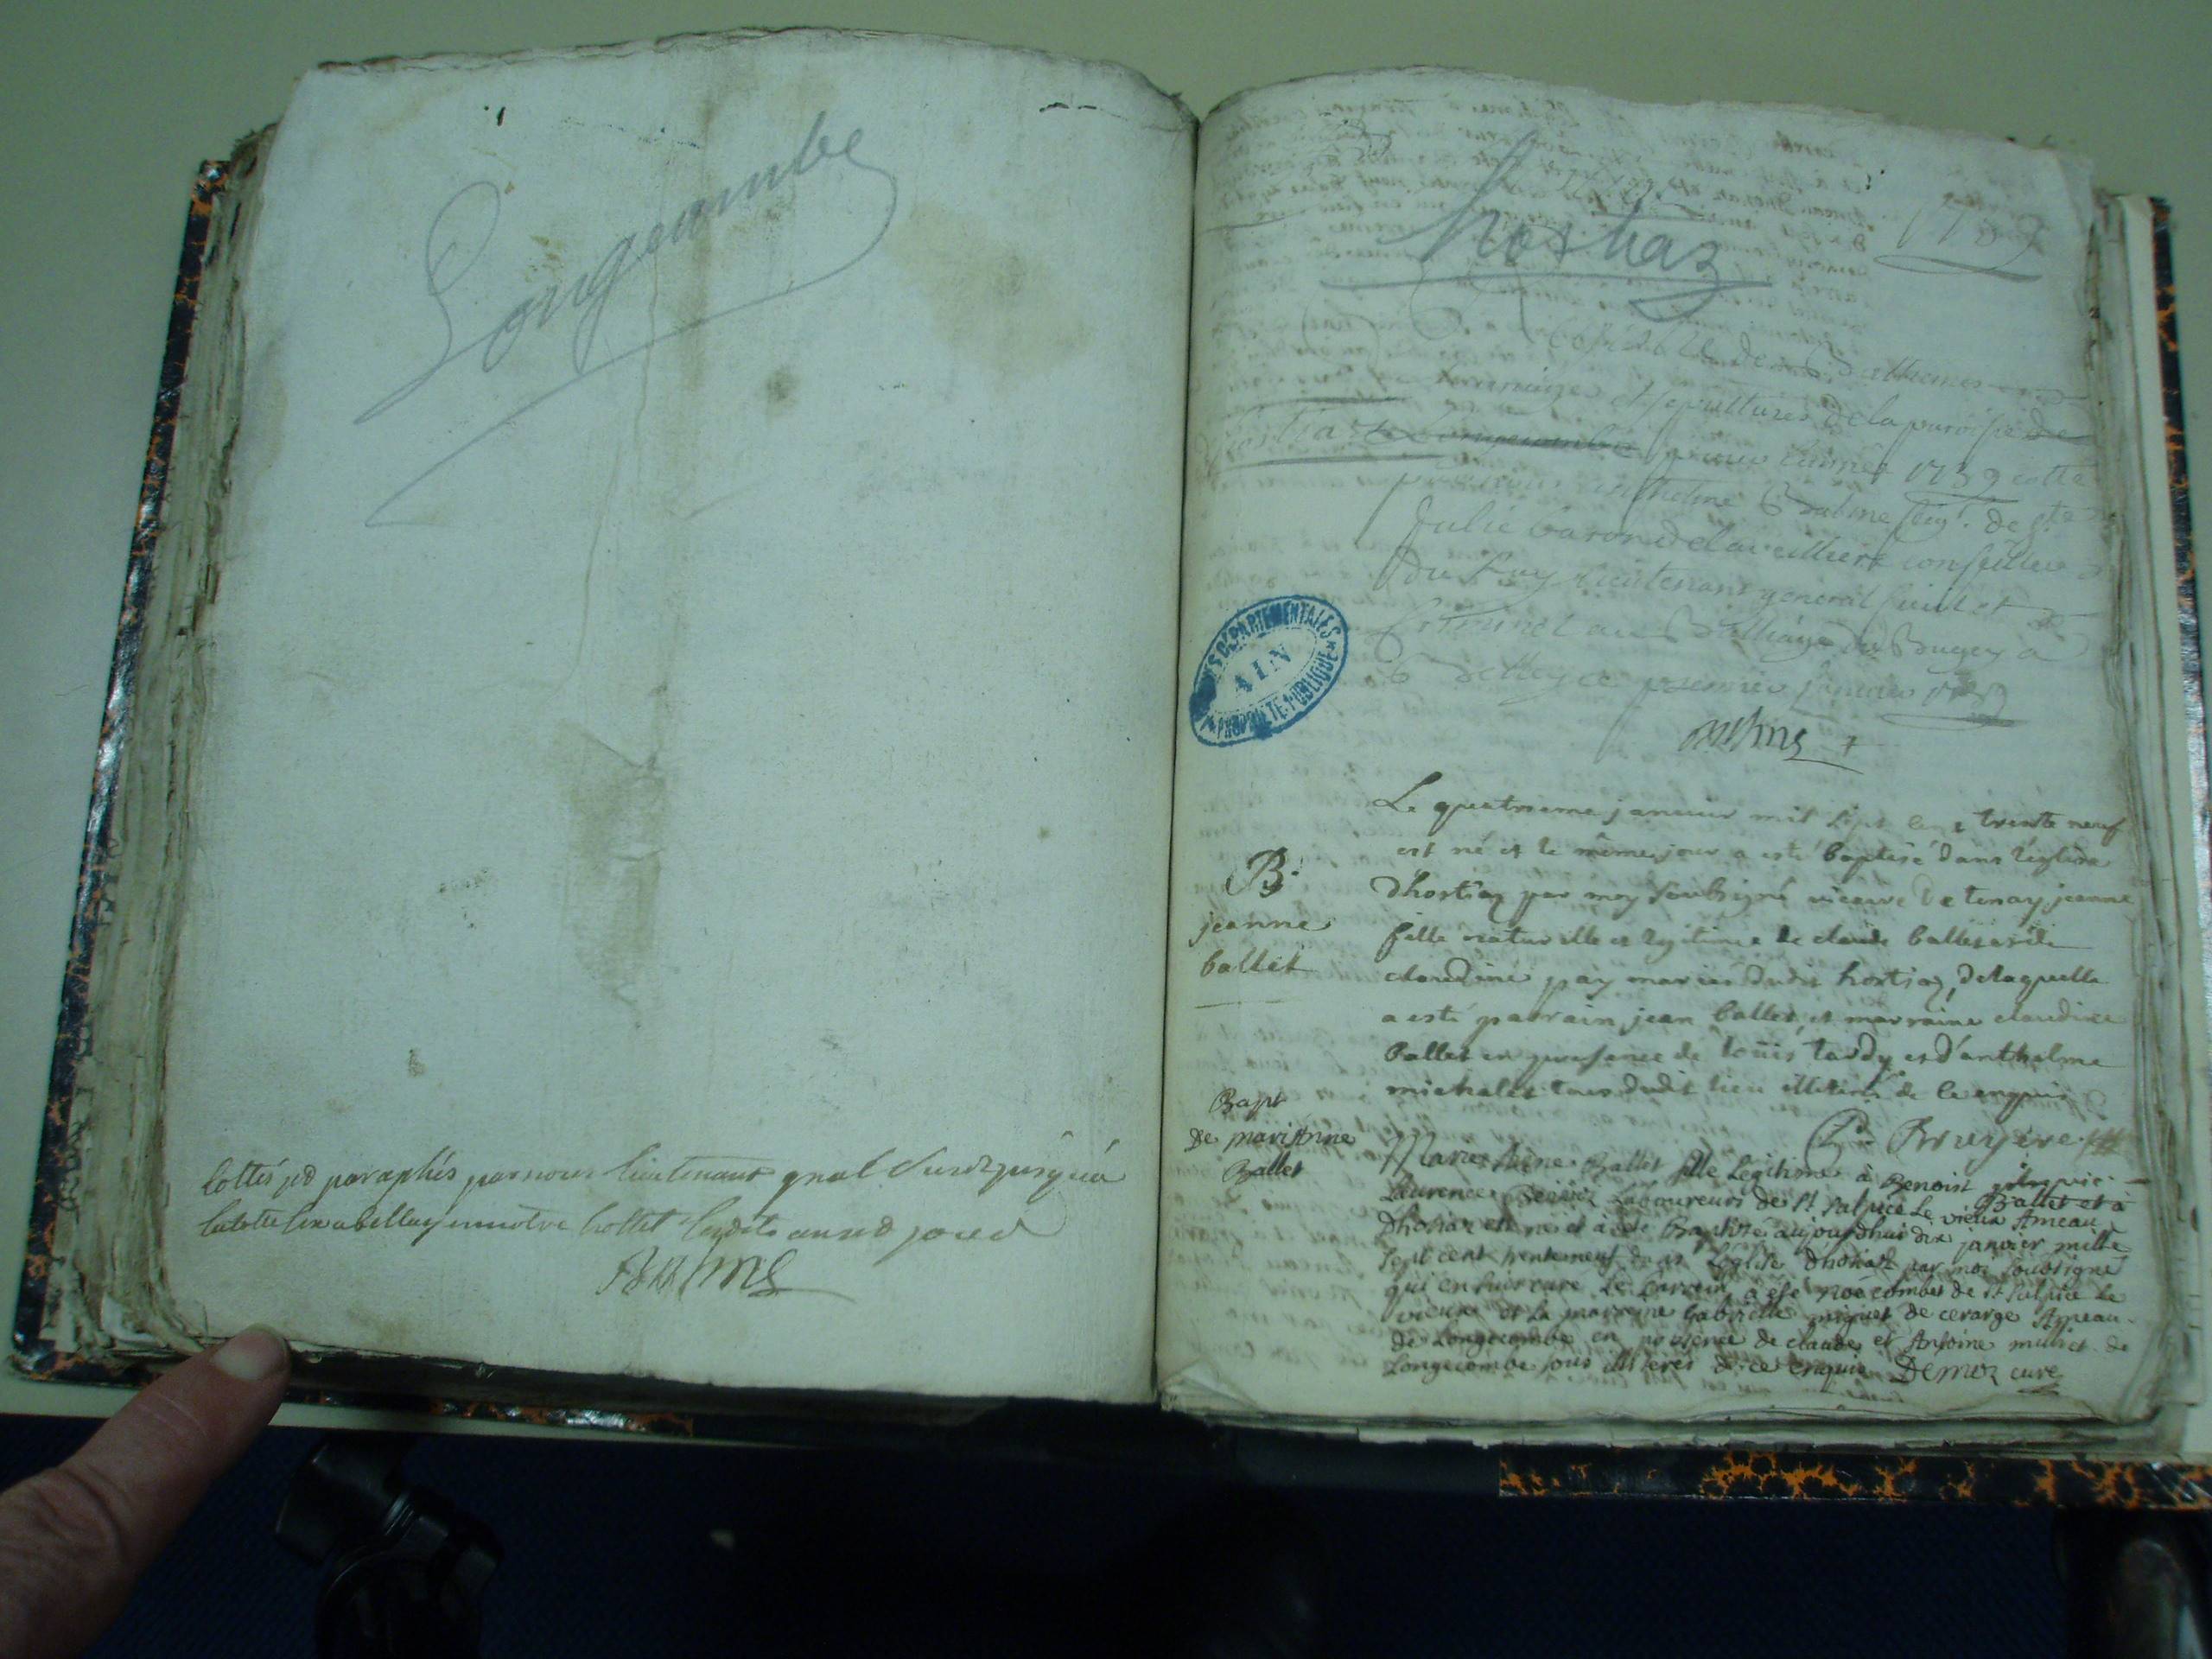 Longecombe
Cottés et paraphés par nous lieutenant gnal jusqu'à
a belley en notre hottel lesdits an et jour
Hostiaz
1739
Baptemes
mariages et sepultures de la paroisse de
hostiaz Longecombe pour l'année 1739 cotté
par nous anthelme Balme seigr. de ste
Julie baron de la veilliere conseiller
du Roy lieutenant general civil et
Criminel au Balliage du Bugey a
Belley ce premier janvier 1739
ARCHIVES DÉPARTEMENTALES
AIN
PROPRIÉTÉ PUBLIQUE
B.
jeanne
ballet
Le quatrieme janvier mil sept cent trente neuf
est né et le même jour a esté baptisé dans l'eglise
dhostiaz par moy soubsigné vicaire de tenay jeanne
fille naturelle et legitime de claude ballet et de
claudine pay mariés dudit hostiaz, de laquelle
a esté parrain jean ballet et marraine claudine
ballet en presence de loüis tardy et d'anthelme
michalet tous dudit lieu illiterés de ce enquis
Bruyere
Bapt
de mariAnne
Ballet
Marie Anne Ballet fille Legitime à Benoist
Ballet et à
Laurence Laboureurs de St Sulpice Le vieux Ameau
Dhostiaz est né et à été Baptisée aujourdhui dix janvier mille
sept cent trente neuf dans L'eglise Dhostiaz par moi soussigne
qui en suis curé. Le parrein à esté Noé combet de St Sulpice Le
vieux et La marreine Gabrielle miguet de cerarge Ameau
de Longecombe en presence de claude et Antoine muliet de
Longecombe tous illiterés de ce enquis Demoz curé